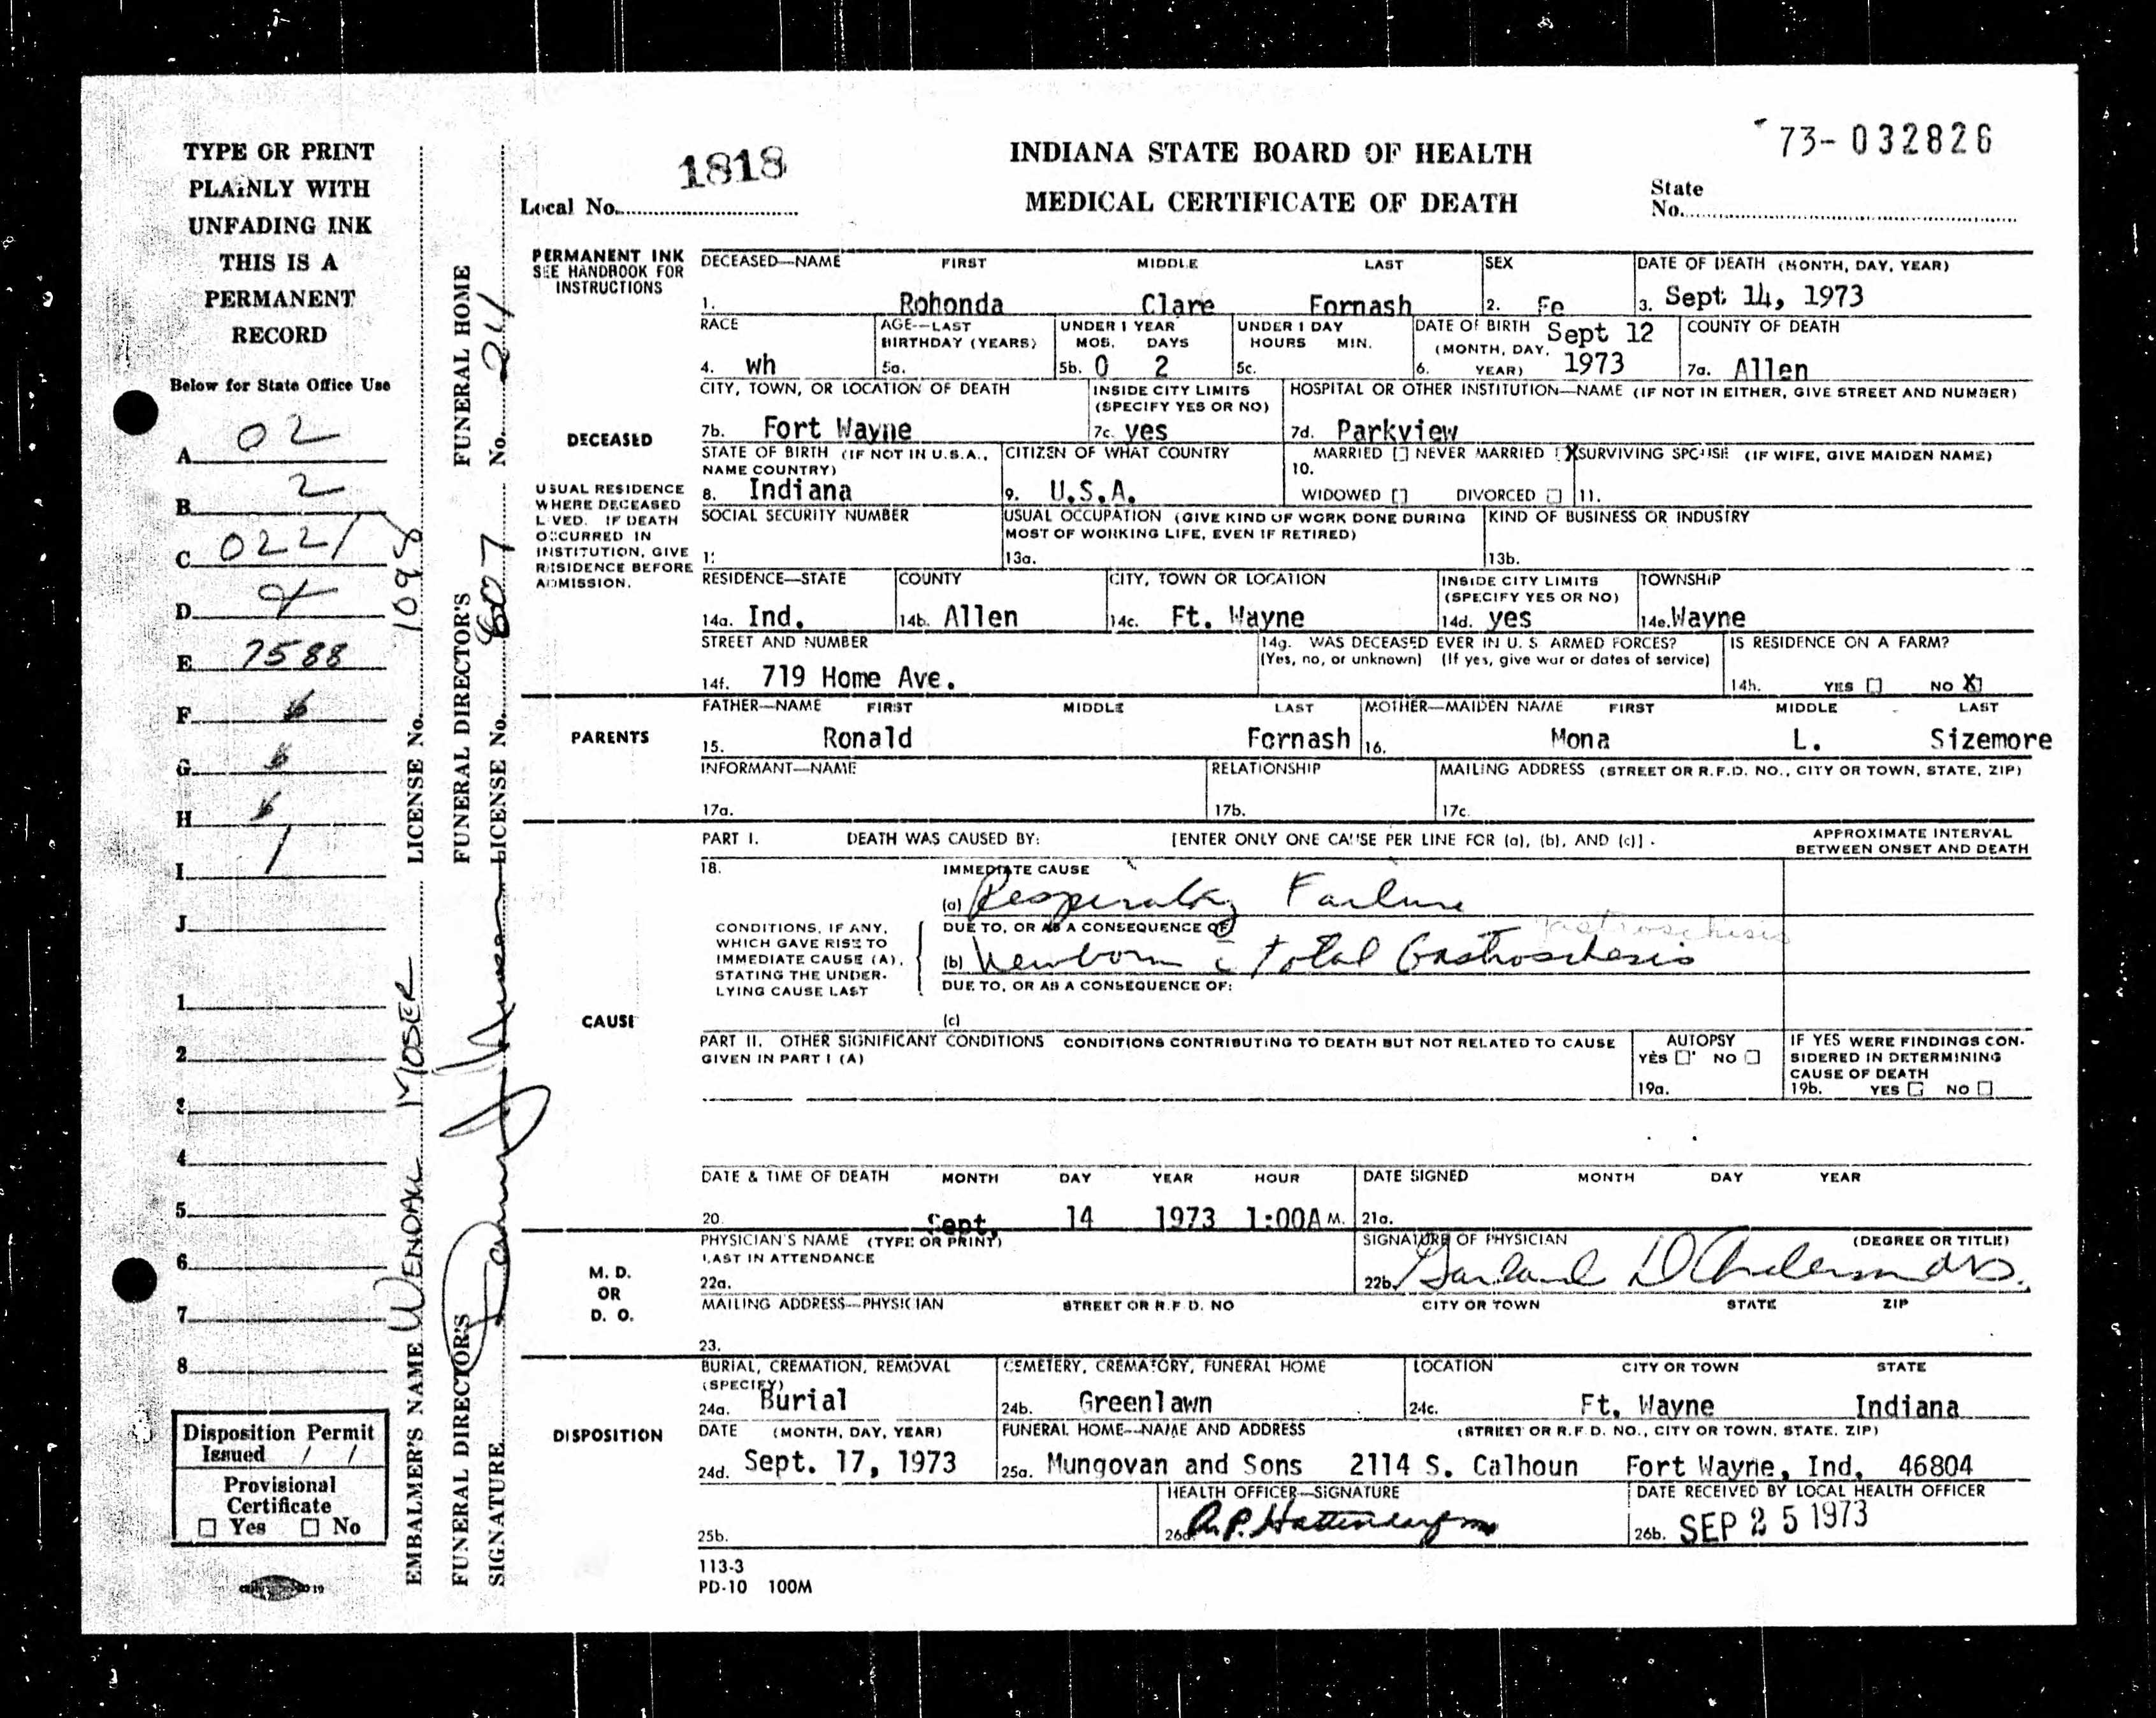 TYPE OR PRINT
PLAINLY WITH
UNFADING INK
THIS IS A
PERMANENT
RECORD
Below for State Office Use
A 02
B 2
C 0221
D
E 7588
F
G
H
I 1
J
1
2
3
4
5
6
7
8
Disposition Permit
Issued / /
Provisional
Certificate
☐ Yes ☐ No
EMBALMER'S NAME WENDALL MOSER LICENSE No. 1098
FUNERAL DIRECTOR'S FUNERAL DIRECTOR'S FUNERAL HOME
SIGNATURE LICENSE No. 607 No. 211
1818
Local No.
INDIANA STATE BOARD OF HEALTH
MEDICAL CERTIFICATE OF DEATH
73-032826
State
No.
PERMANENT INK
SEE HANDBOOK FOR
INSTRUCTIONS
DECEASED
USUAL RESIDENCE
WHERE DECEASED
LIVED. IF DEATH
OCCURRED IN
INSTITUTION, GIVE
RESIDENCE BEFORE
ADMISSION.
DECEASED—NAME FIRST MIDDLE LAST SEX DATE OF DEATH (MONTH, DAY, YEAR)
1. Rohonda Clare Fornash 2. Fe 3. Sept. 14, 1973
RACE AGE—LAST UNDER 1 YEAR UNDER 1 DAY DATE OF BIRTH Sept 12 COUNTY OF DEATH
BIRTHDAY (YEARS) MOS. DAYS HOURS MIN. (MONTH, DAY,
4. wh 5a. 5b. 0 2 5c. 6. YEAR) 1973 7a. Allen
CITY, TOWN, OR LOCATION OF DEATH INSIDE CITY LIMITS HOSPITAL OR OTHER INSTITUTION—NAME (IF NOT IN EITHER, GIVE STREET AND NUMBER)
(SPECIFY YES OR NO)
7b. Fort Wayne 7c. yes 7d. Parkview
STATE OF BIRTH (IF NOT IN U.S.A., CITIZEN OF WHAT COUNTRY MARRIED ☐ NEVER MARRIED X SURVIVING SPOUSE (IF WIFE, GIVE MAIDEN NAME)
NAME COUNTRY) 10.
8. Indiana 9. U.S.A. WIDOWED ☐ DIVORCED ☐ 11.
SOCIAL SECURITY NUMBER USUAL OCCUPATION (GIVE KIND OF WORK DONE DURING KIND OF BUSINESS OR INDUSTRY
MOST OF WORKING LIFE, EVEN IF RETIRED)
13a. 13b.
RESIDENCE—STATE COUNTY CITY, TOWN OR LOCATION INSIDE CITY LIMITS TOWNSHIP
(SPECIFY YES OR NO)
14a. Ind. 14b. Allen 14c. Ft. Wayne 14d. yes 14e. Wayne
STREET AND NUMBER 14g. WAS DECEASED EVER IN U. S. ARMED FORCES? IS RESIDENCE ON A FARM?
(Yes, no, or unknown) (If yes, give war or dates of service)
14f. 719 Home Ave. 14h. YES ☐ NO X
PARENTS
FATHER—NAME FIRST MIDDLE LAST MOTHER—MAIDEN NAME FIRST MIDDLE LAST
15. Ronald Fornash 16. Mona L. Sizemore
INFORMANT—NAME RELATIONSHIP MAILING ADDRESS (STREET OR R.F.D. NO., CITY OR TOWN, STATE, ZIP)
17a. 17b. 17c.
CAUSE
PART I. DEATH WAS CAUSED BY: [ENTER ONLY ONE CAUSE PER LINE FOR (a), (b), AND (c)]. APPROXIMATE INTERVAL
BETWEEN ONSET AND DEATH
18. IMMEDIATE CAUSE
(a) Respiratory Failure
CONDITIONS, IF ANY,
WHICH GAVE RISE TO
IMMEDIATE CAUSE (A),
STATING THE UNDER-
LYING CAUSE LAST
DUE TO, OR AS A CONSEQUENCE OF: gastroschisis
(b) Newborn c̄ total Gastroschesis
DUE TO, OR AS A CONSEQUENCE OF:
(c)
PART II. OTHER SIGNIFICANT CONDITIONS CONDITIONS CONTRIBUTING TO DEATH BUT NOT RELATED TO CAUSE
GIVEN IN PART I (A)
AUTOPSY
YES ☐ NO ☐
19a.
IF YES WERE FINDINGS CON-
SIDERED IN DETERMINING
CAUSE OF DEATH
19b. YES ☐ NO ☐
DATE & TIME OF DEATH MONTH DAY YEAR HOUR DATE SIGNED MONTH DAY YEAR
20. Sept. 14 1973 1:00A M. 21a.
M. D.
OR
D. O.
PHYSICIAN'S NAME (TYPE OR PRINT) SIGNATURE OF PHYSICIAN (DEGREE OR TITLE)
LAST IN ATTENDANCE
22a. 22b. Garland D Anderson MD.
MAILING ADDRESS—PHYSICIAN STREET OR R.F.D. NO CITY OR TOWN STATE ZIP
23.
DISPOSITION
BURIAL, CREMATION, REMOVAL CEMETERY, CREMATORY, FUNERAL HOME LOCATION CITY OR TOWN STATE
(SPECIFY)
24a. Burial 24b. Greenlawn 24c. Ft. Wayne Indiana
DATE (MONTH, DAY, YEAR) FUNERAL HOME—NAME AND ADDRESS (STREET OR R.F.D. NO., CITY OR TOWN, STATE, ZIP)
24d. Sept. 17, 1973 25a. Mungovan and Sons 2114 S. Calhoun Fort Wayne, Ind. 46804
HEALTH OFFICER—SIGNATURE DATE RECEIVED BY LOCAL HEALTH OFFICER
25b. 26a. 26b. SEP 25 1973
113-3
PD-10 100M